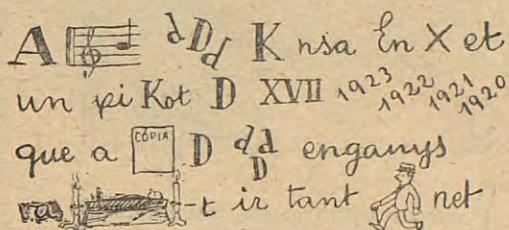 A dDd K nsa En X et
un pi Kot D XVII 1923 1922 1921 1920
que a CÒPIA D ddD enganys
va -t ir tant net